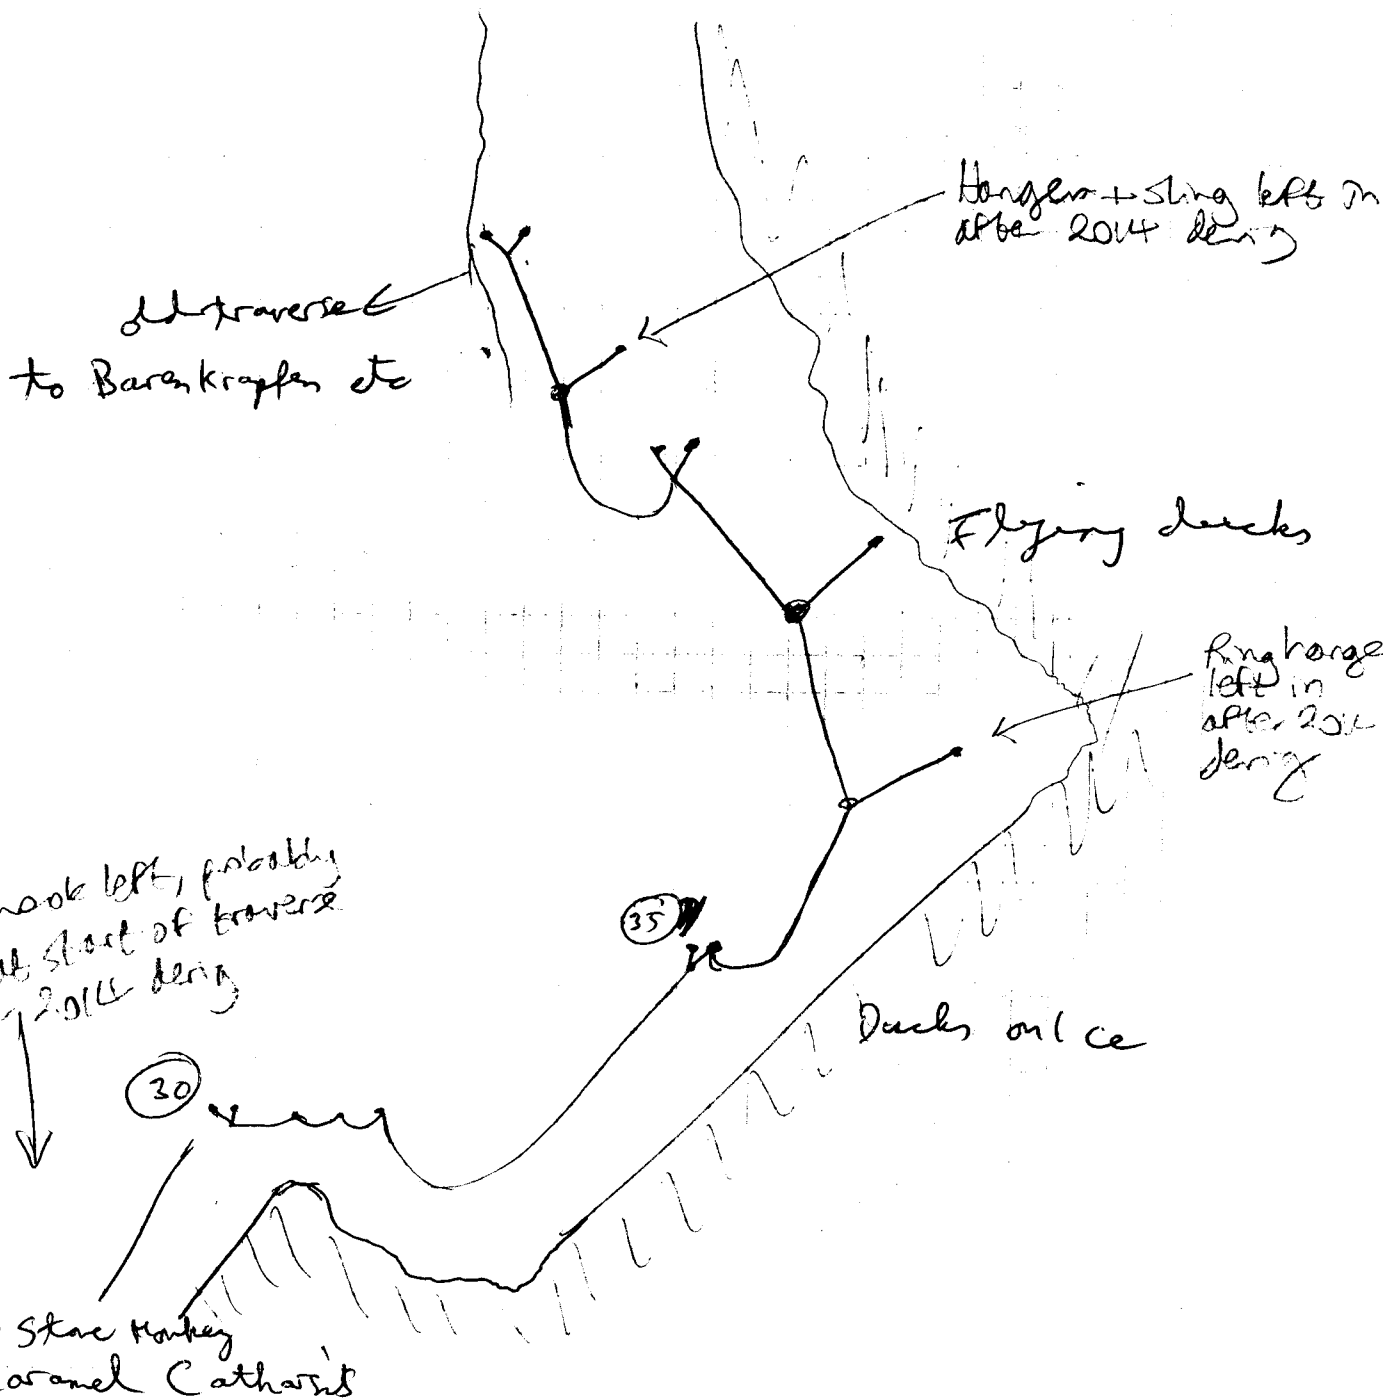 Hanger + sling left in
after 2014 derig
old traverse
to Barenkrapfen etc
Flying ducks
Ring hange
left in
after 2014
derig
hook left, probably
at start of traverse
2014 derig
35
Ducks on Ice
30
Stone Monkey
aramel Catharsis